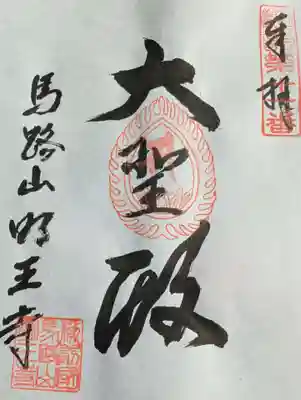 奉拝
大聖殿
馬路山明王寺